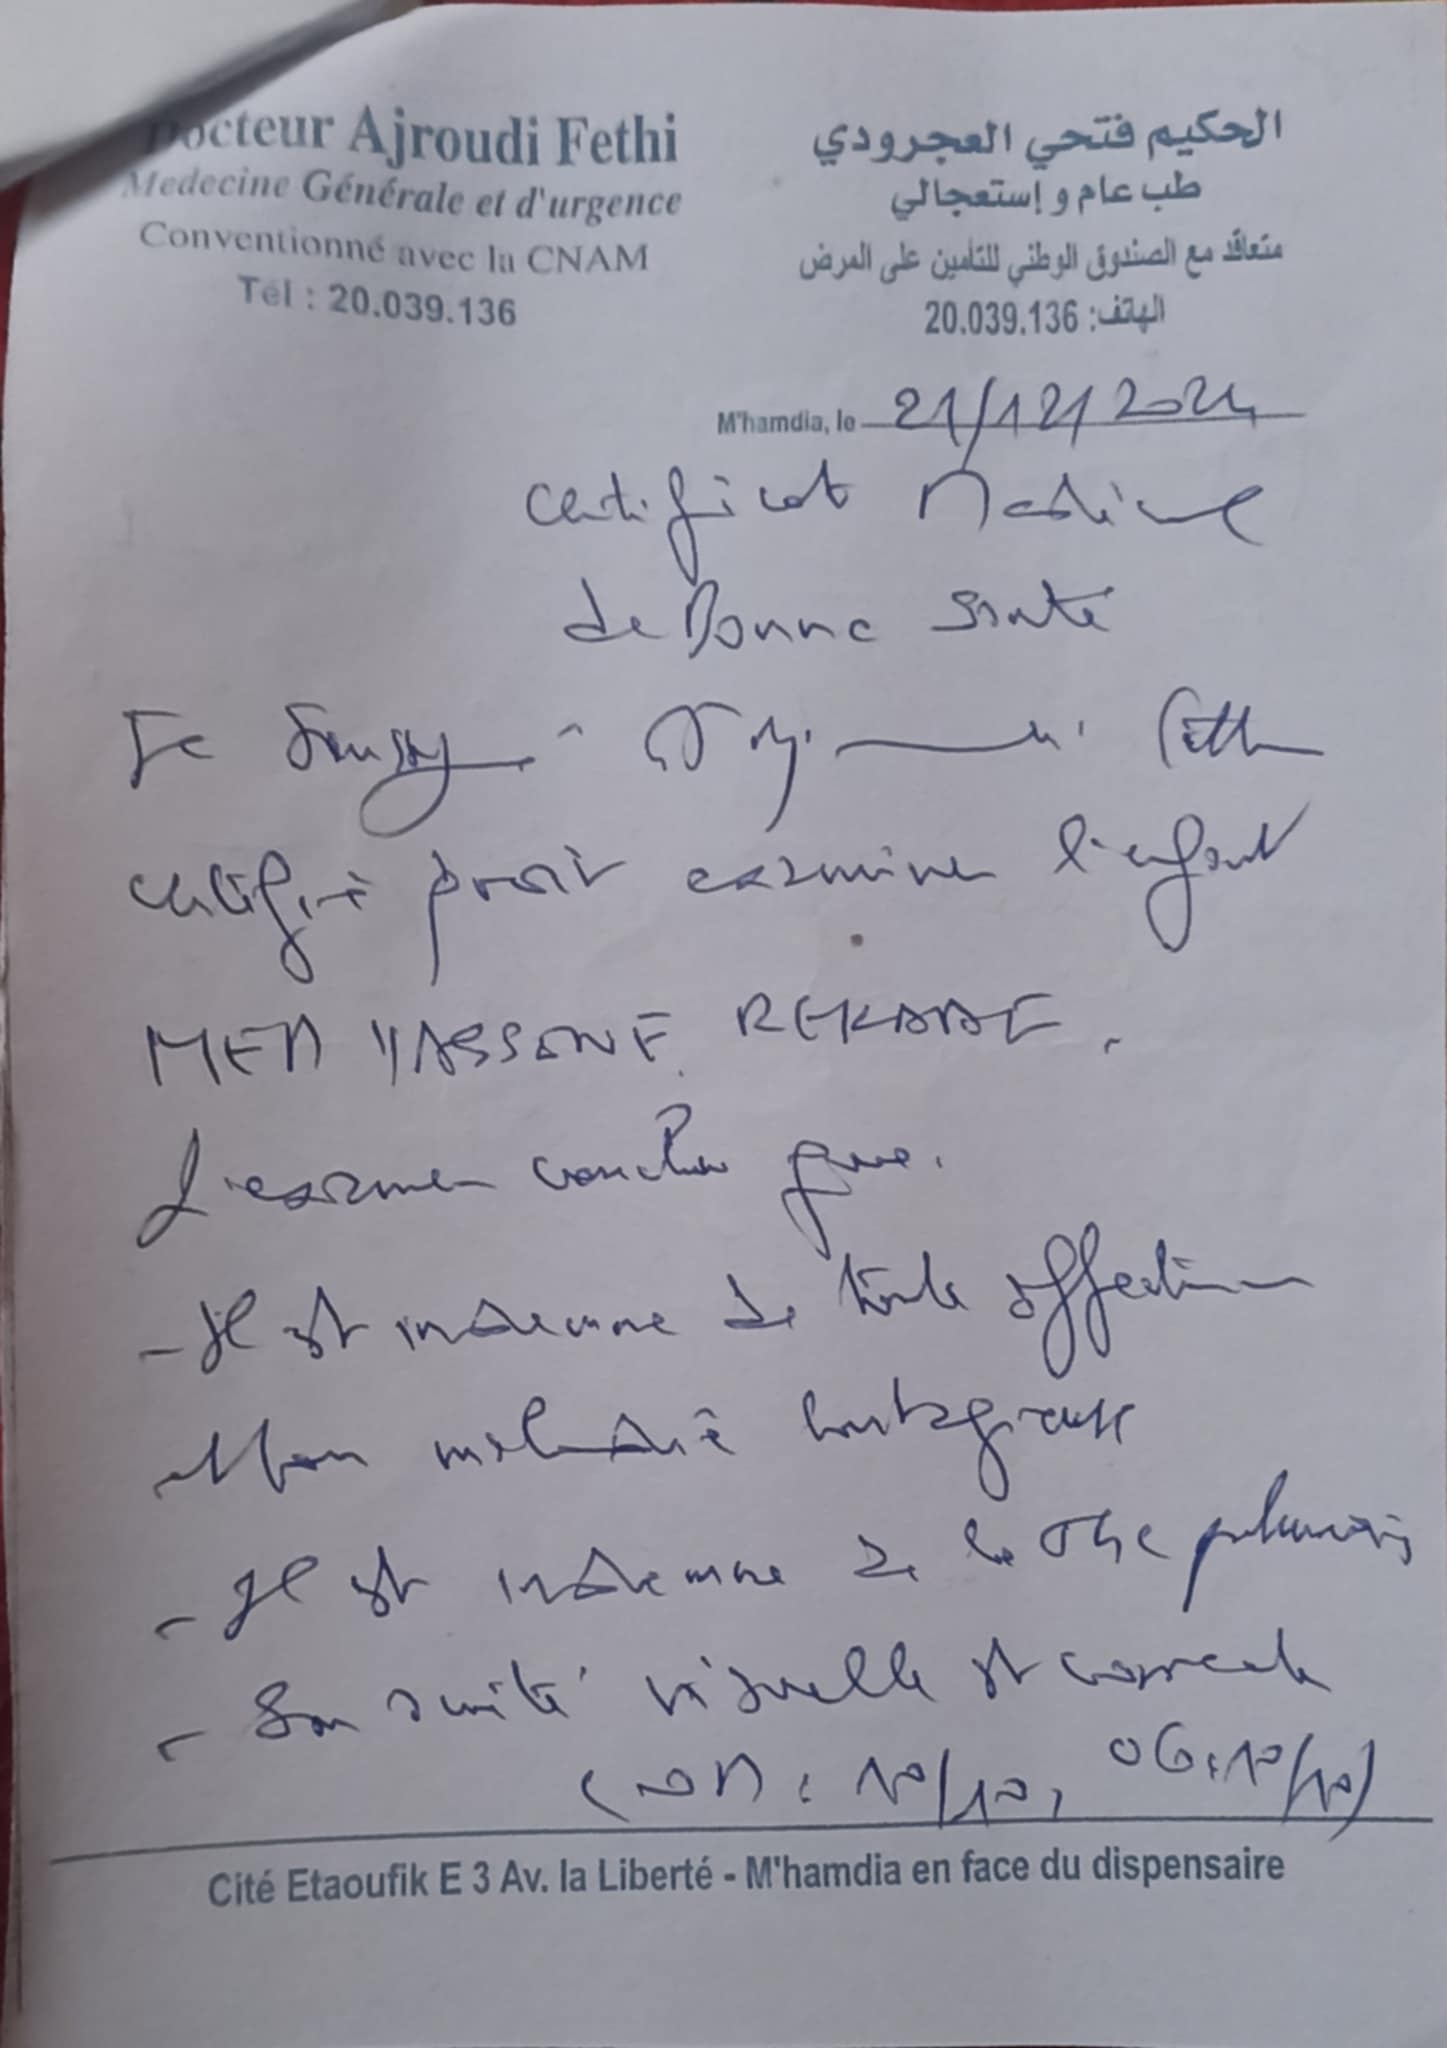 Docteur Ajroudi Fethi
Medecine Générale et d'urgence
Conventionné avec la CNAM
Tél : 20.039.136
الحكيم فتحي العجرودي
طب عام و إستعجالي
متعاقد مع الصندوق الوطني للتأمين على المرض
الهاتف: 20.039.136
M'hamdia, le 21/12/2024
Certificat Médicale
de Bonne santé
Je Fethi
certifie avoir examiner l'enfant
MED YASSINE
L'examen conclu que
- Il est indemne de toute affection
maladie contagieuse
- Il est indemne de la pulmonaire
- Son acuité visuelle est correcte
(OD : 10/10, OG : 10/10)
Cité Etaoufik E 3 Av. la Liberté - M'hamdia en face du dispensaire